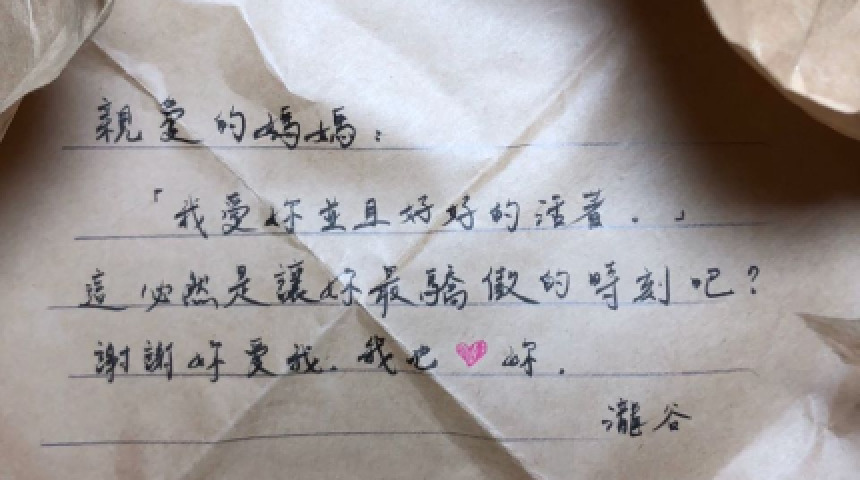 親愛的媽媽：
「我愛妳並且好好的活著.」
這必然是讓妳最驕傲的時刻吧？
謝謝妳愛我.我也♥妳.
瀧谷